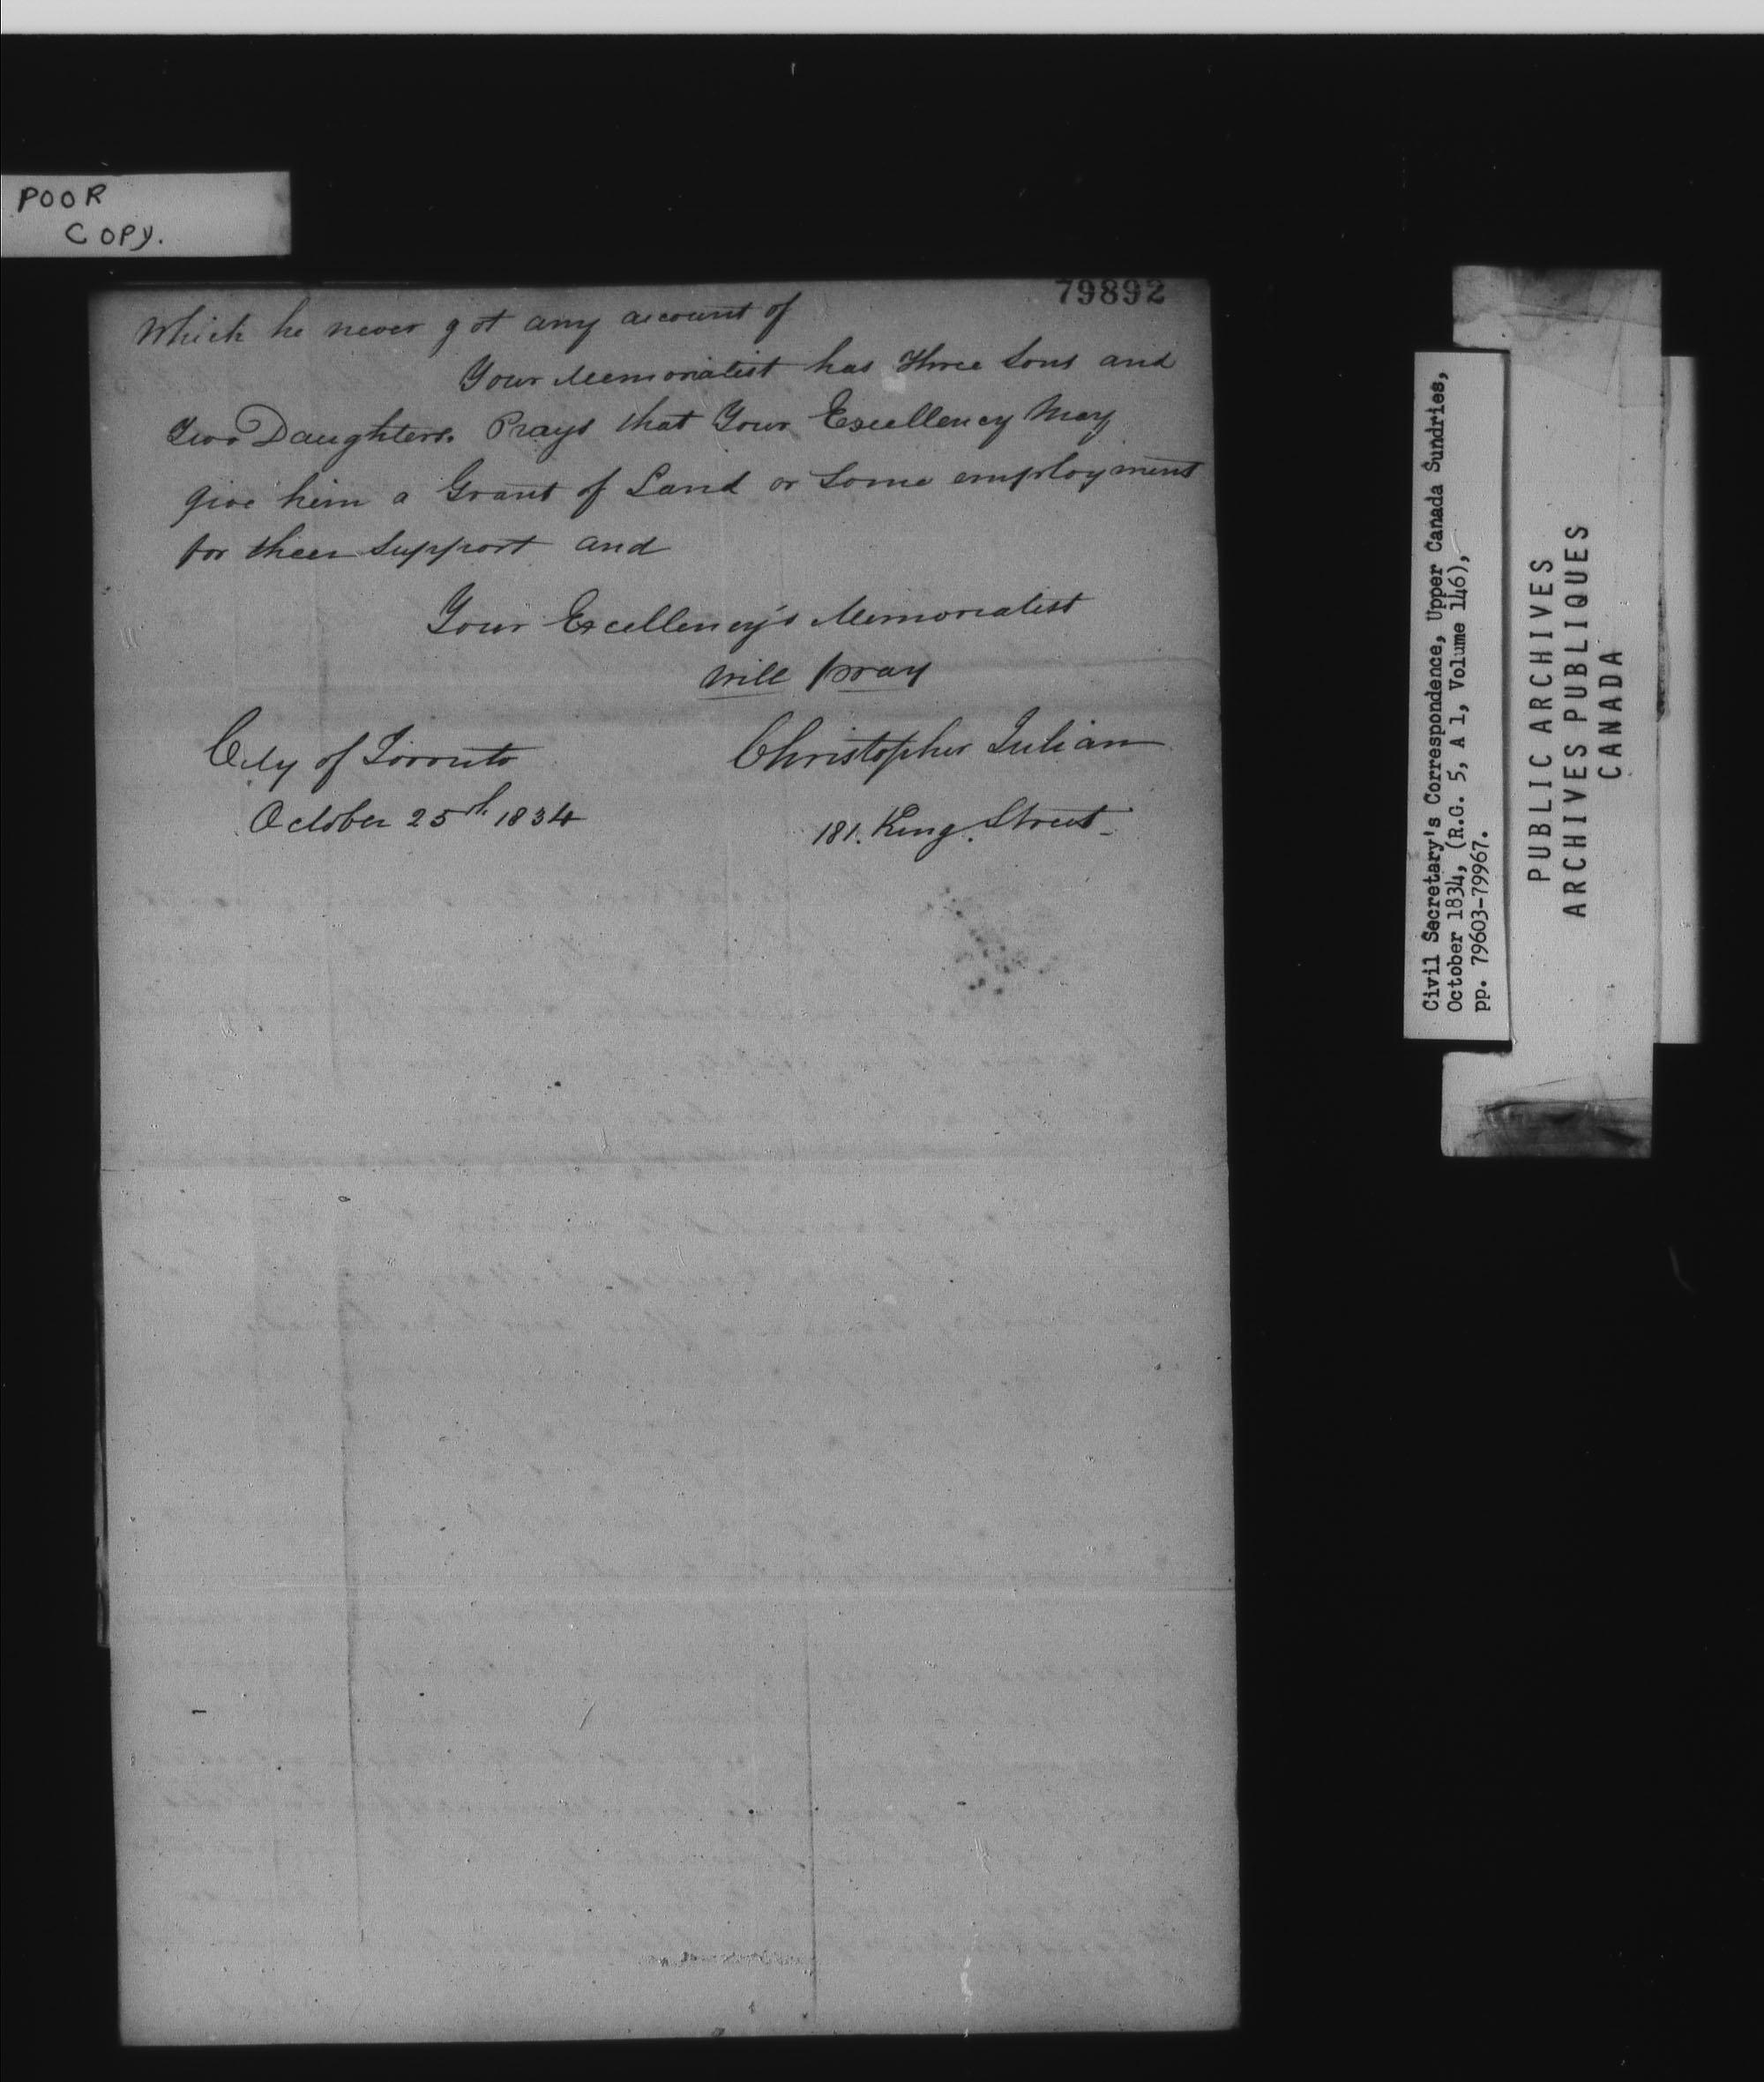 POOR
COPY.
79892
Which he never got any account of
Your Memorialist has three Sons and
Two Daughters. Prays that Your Excellency May
give him a Grant of Land or Some employment
for their Support and
Your Excellency's Memorialist
will pray
City of Toronto
Christopher Julian
October 25th 1834
181. King Street
Civil Secretary's Correspondence, Upper Canada Sundries,
October 1834, (R.G. 5, A 1, Volume 146),
pp. 79603-79967.
PUBLIC ARCHIVES
ARCHIVES PUBLIQUES
CANADA